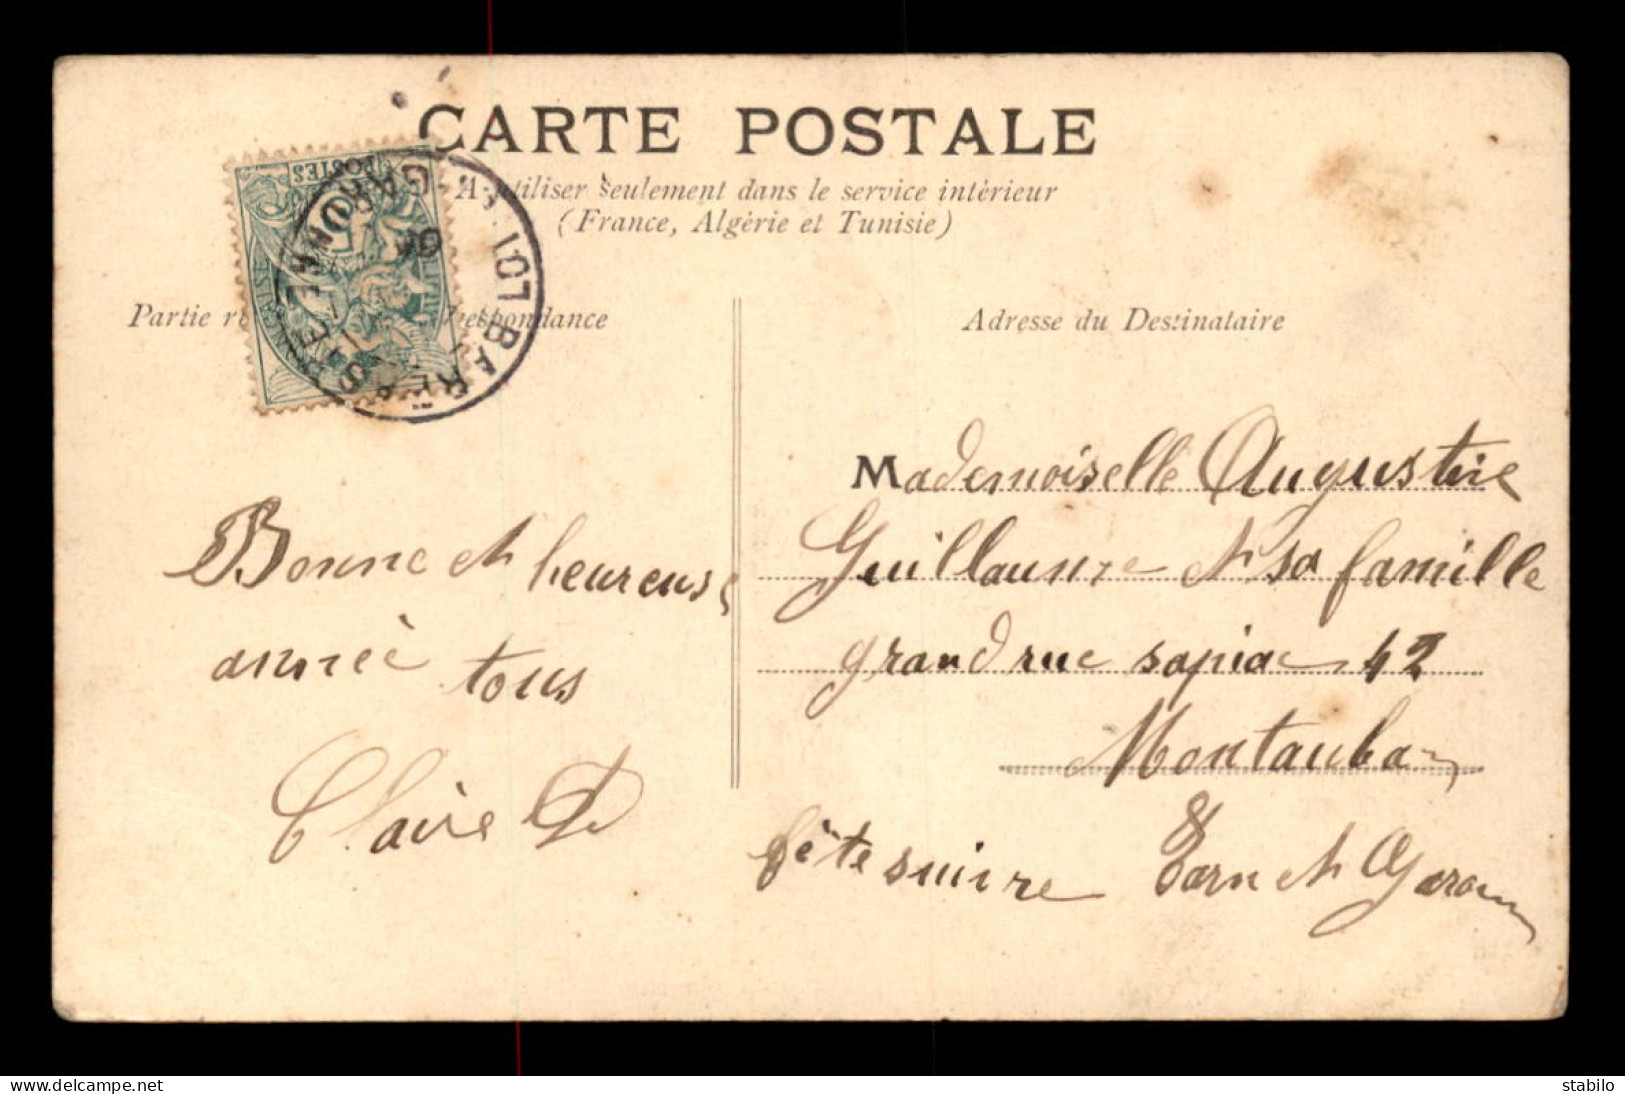 CARTE POSTALE
A utiliser seulement dans le service intérieur
(France, Algérie et Tunisie)
POSTES
LOUBARÉA
Partie
Adresse du Destinataire
Bonne et heureuse
année tous
Claire D
Mademoiselle Augustine
Guillaume et sa famille
grand rue sapiac 42
Montauban
fête suivre Tarn et Garonne
delcampe.net
stabilo